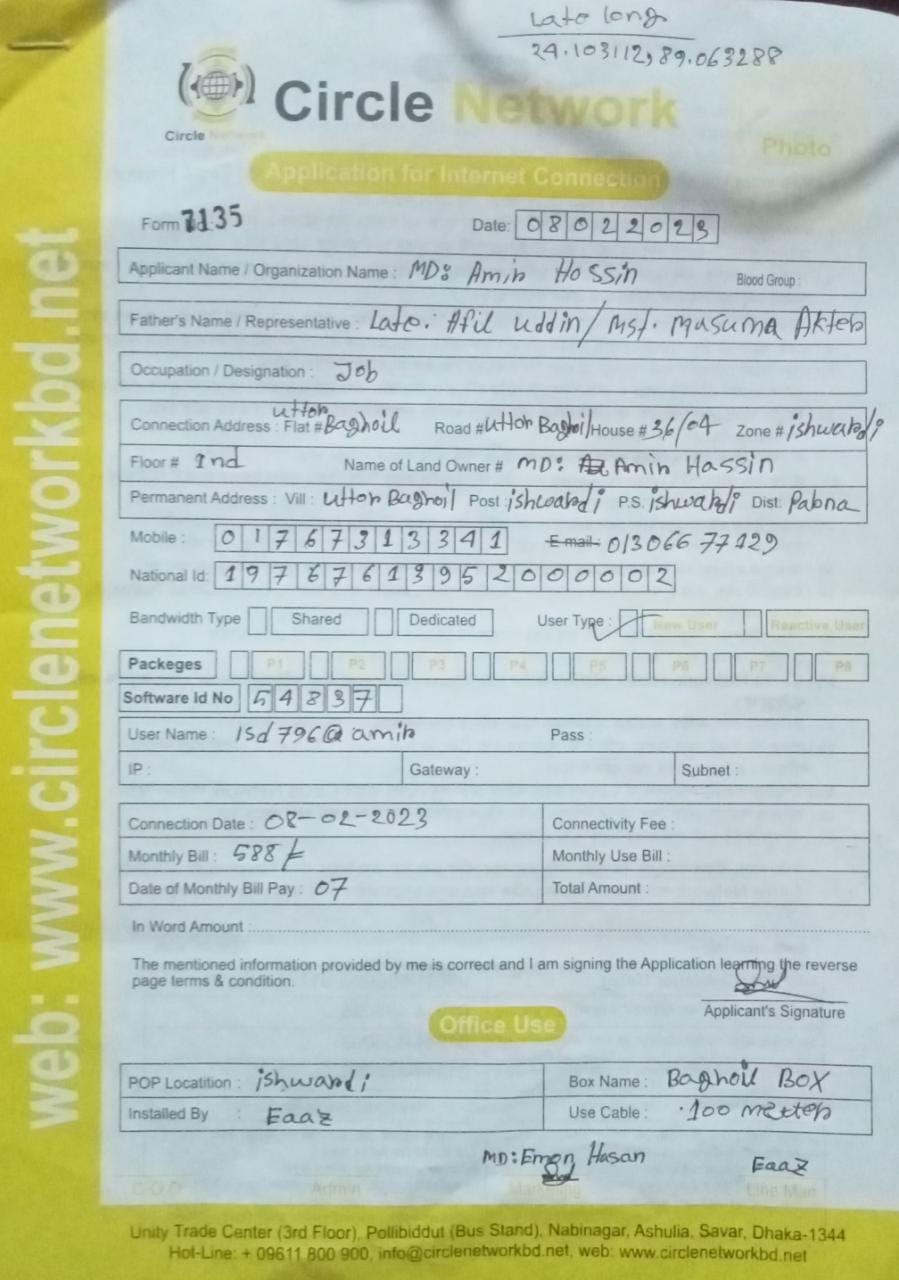 Lato long
24.103112, 89.063288
Circle Network
Circle Network
Photo
Application for Internet Connection
Form Id: 7135 Date: 08022023
Applicant Name / Organization Name : MD: Amin Hossin Blood Group :
Father's Name / Representative : Late. Afil uddin / Mst. Masuma Akter
Occupation / Designation : Job
Connection Address : Flat # uttor Baghoil Road # uttor Baghoil House # 36/04 Zone # ishwardi
Floor # 2nd Name of Land Owner # MD: Amin Hassin
Permanent Address : Vill : uttor Baghoil Post : ishwardi P.S. ishwardi Dist: Pabna
Mobile : 01767313341 E-mail: 01306677129
National Id: 19767613952000002
Bandwidth Type Shared Dedicated User Type : New User Reactive User
Packeges P1 P2 P3 P4 P5 P6 P7 P8
Software Id No 54837
User Name : isd796@amin Pass :
IP : Gateway : Subnet :
Connection Date : 08-02-2023 Connectivity Fee :
Monthly Bill : 588/= Monthly Use Bill :
Date of Monthly Bill Pay : 07 Total Amount :
In Word Amount :
The mentioned information provided by me is correct and I am signing the Application learning the reverse
page terms & condition.
Applicant's Signature
Office Use
POP Locatition : ishwardi Box Name : Baghoil BOX
Installed By : Eaaz Use Cable : 100 metter
MD: Emon Hasan Eaaz
C.O.O Admin Marketing Line Man
Unity Trade Center (3rd Floor), Pollibiddut (Bus Stand), Nabinagar, Ashulia, Savar, Dhaka-1344
Hot-Line: + 09611 800 900, info@circlenetworkbd.net, web: www.circlenetworkbd.net
web: www.circlenetworkbd.net